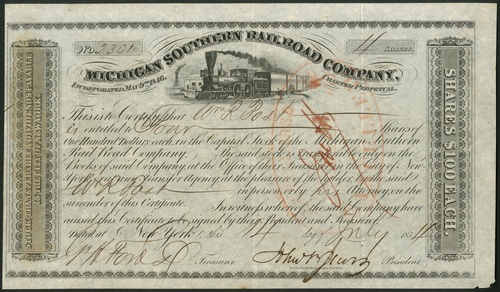 No. 2301 4 SHARES.
MICHIGAN SOUTHERN RAILROAD COMPANY,
INCORPORATED MAY 9TH 1846. CHARTER PERPETUAL.
This is to Certify that Wm R Post
is entitled to Four Shares of
One Hundred Dollars each, in the Capital Stock of the Michigan Southern
Rail Road Company, The said stock is transferable upon the
Books of said Company at the Office of the Treasurer in New-
York, at the pleasure of said
Wm R Post in person or by his Attorney, on the
surrender of this Certificate. In witness whereof the said Company have
caused this Certificate to be signed by their President and Treasurer
at New York this 14 day July 185
Treasurer President
SHARES $100 EACH.